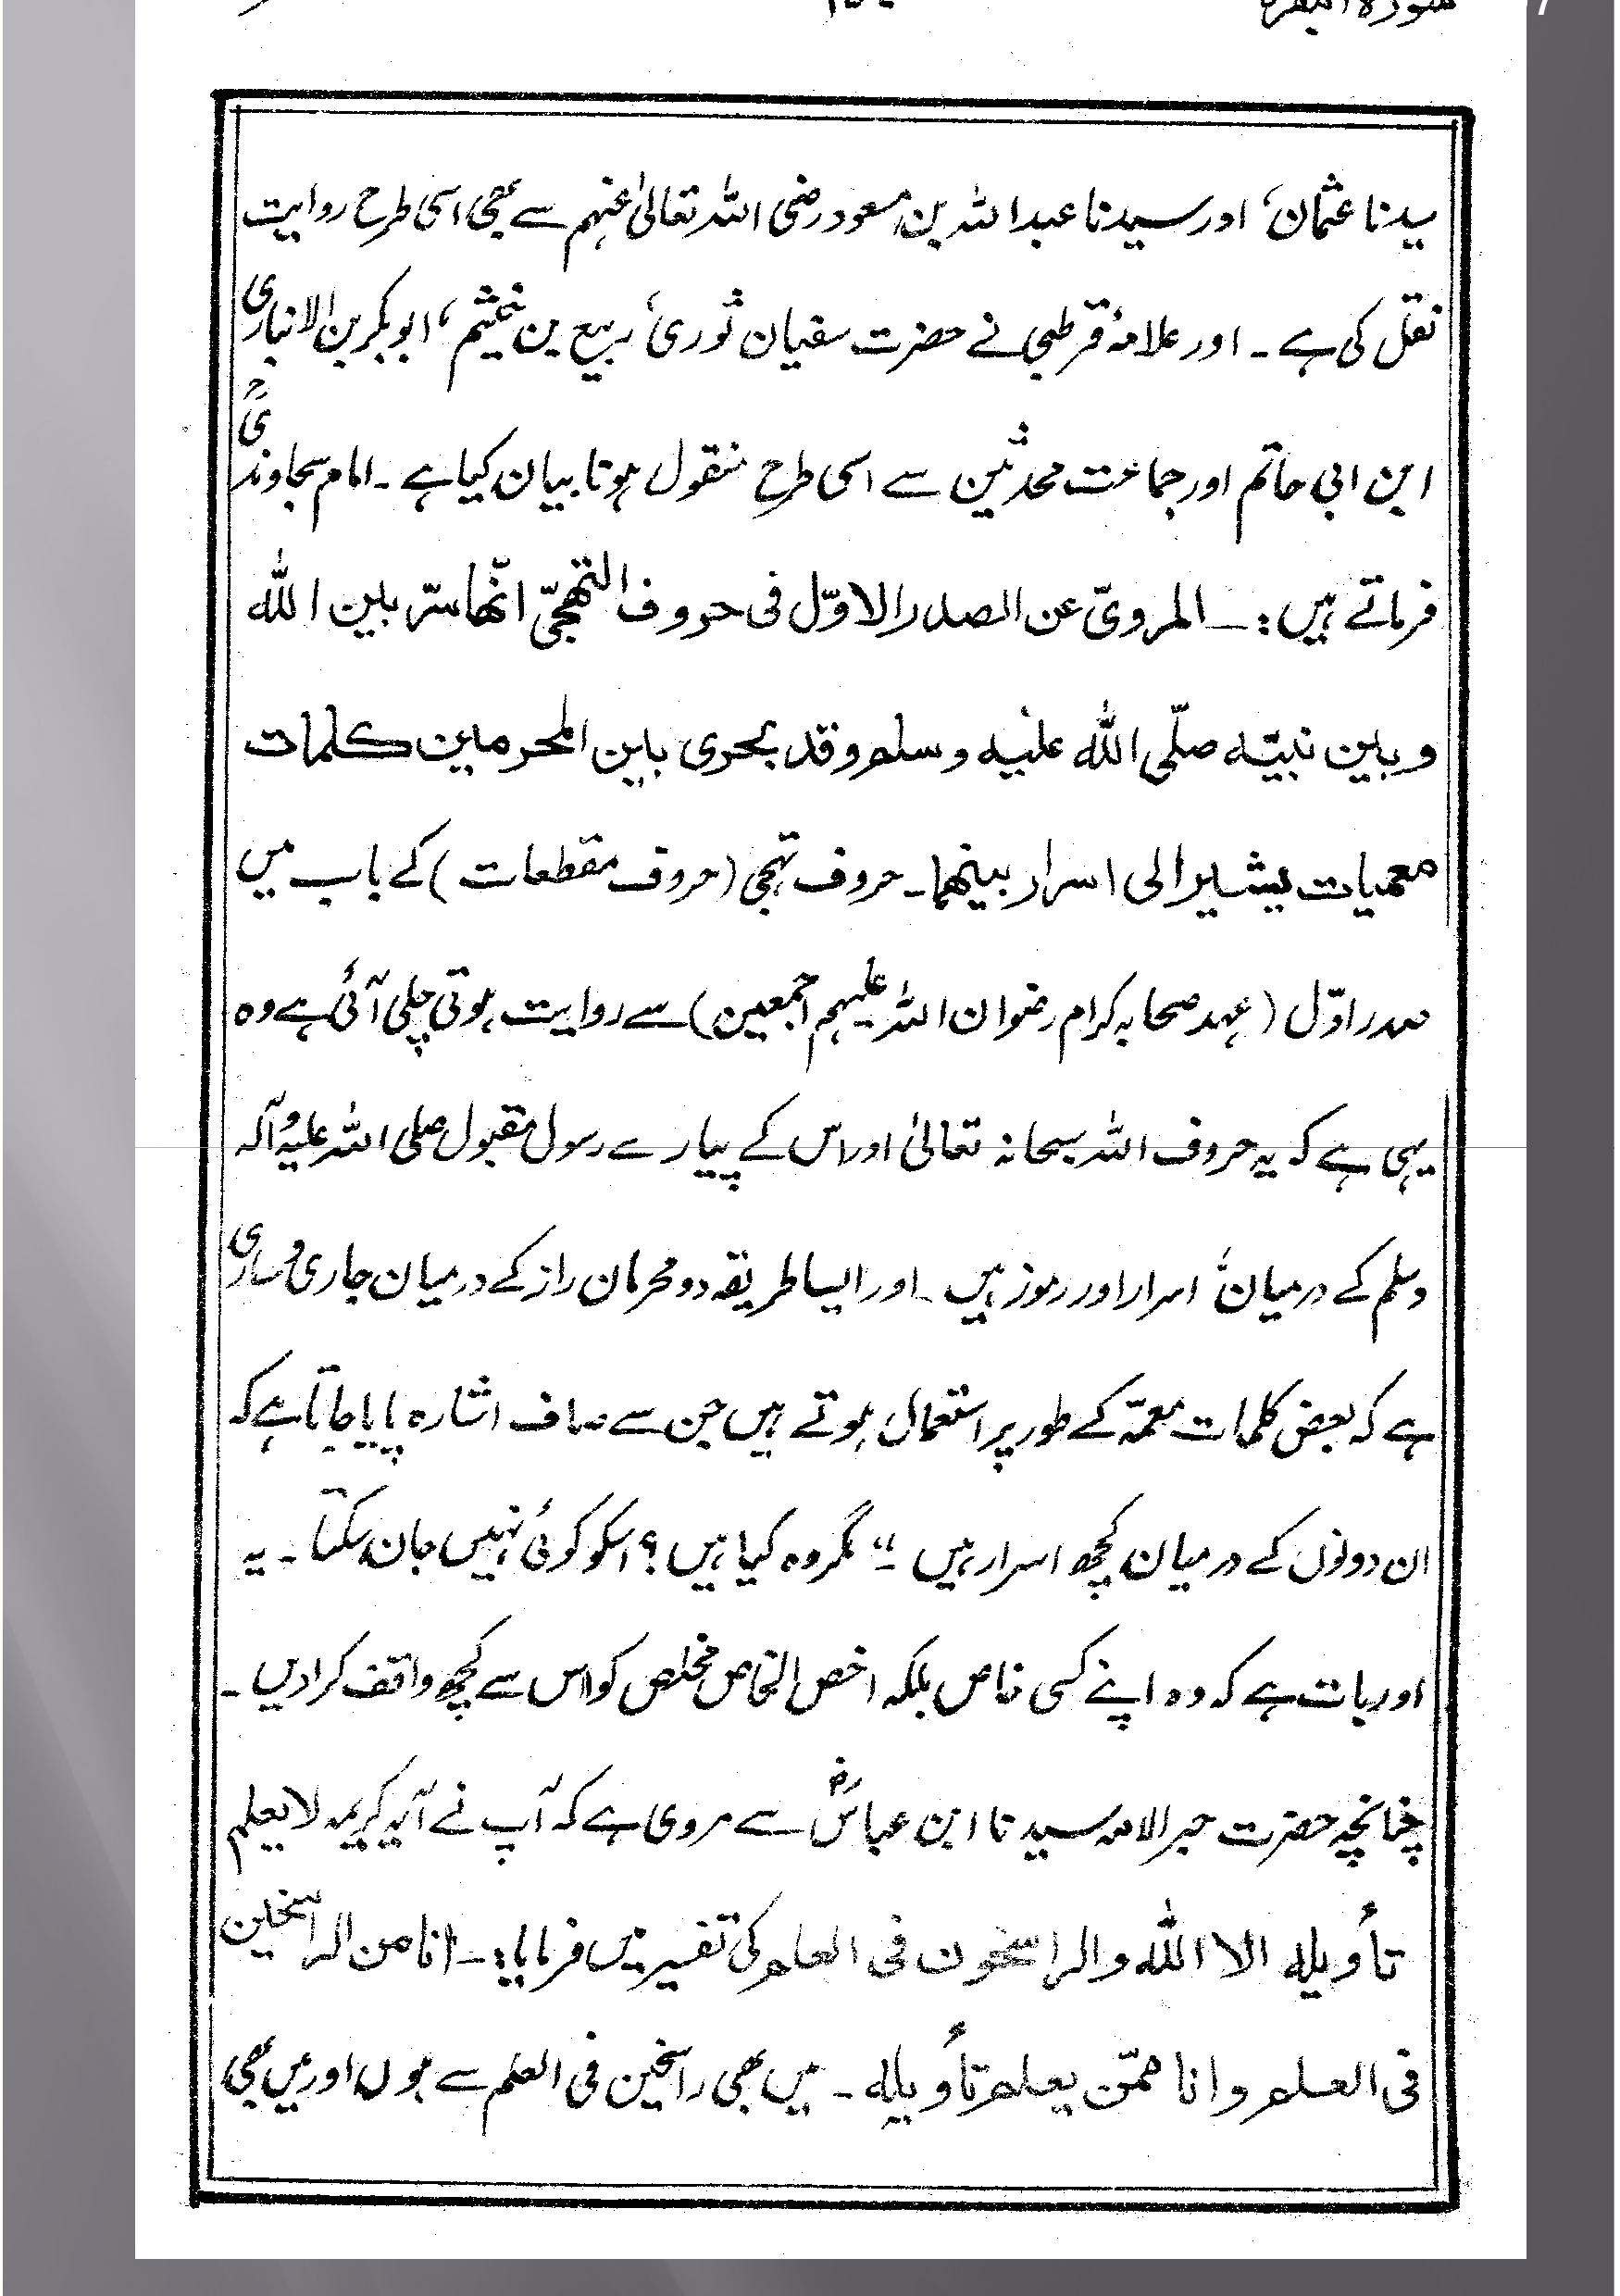 سورة البقرة
سیدنا عثمان، اور سیدنا عبداللہ بن مسعود رضی اللہ تعالیٰ عنہم سے بھی اسی طرح روایت
نقل کی ہے ۔ اور علامہ قرطبی نے حضرت سفیان ثوری، ربیع بن خثیم، ابوبکر بن الانباری
ابن ابی حاتم اور جماعت محدثین سے اسی طرح منقول ہونا بیان کیا ہے ۔ امام سجاوندیؒ
فرماتے ہیں :ـ المرویّ عن الصدر الاوّل فی حروف التھجیّ انّھا سرّ بین اللہ
و بین نبیّہ صلّی اللہ علیہ وسلم وقد یجری بین المحرمین کلمات
معمیات یشیر الی اسرار بینھما ۔ حروف تہجی (حروف مقطعات) کے باب میں
صدر اوّل (عہد صحابہ کرام رضوان اللہ علیہم اجمعین) سے روایت ہوتی چلی آئی ہے وہ
یہی ہے کہ یہ حروف اللہ سبحانہ تعالیٰ اور اس کے پیارے رسول مقبول صلی اللہ علیہ وآلہ
وسلم کے درمیان اسرار اور رموز ہیں ۔ اور ایسا طریقہ دو محرمان راز کے درمیان جاری و ساری
ہے کہ بعض کلمات معمّہ کے طور پر استعمال ہوتے ہیں جن سے صاف اشارہ پایا جاتا ہے کہ
ان دونوں کے درمیان کچھ اسرار ہیں ۔“ مگر وہ کیا ہیں؟ اسکو کوئی نہیں جان سکتا ۔ یہ
اور بات ہے کہ وہ اپنے کسی خاص بلکہ اخص الخاص مخلص کو اس سے کچھ واقف کرا دیں ۔
چنانچہ حضرت حبر الامہ سیدنا ابن عباسؓ سے مروی ہے کہ آپ نے آیہ کریمہ لا یعلم
تأویلہ الا اللہ والراسخون فی العلم کی تفسیر میں فرمایا :ـ انا من الراسخین
فی العلم وانا ممّن یعلم تأویلہ ۔ میں بھی راسخین فی العلم سے ہوں اور میں بھی